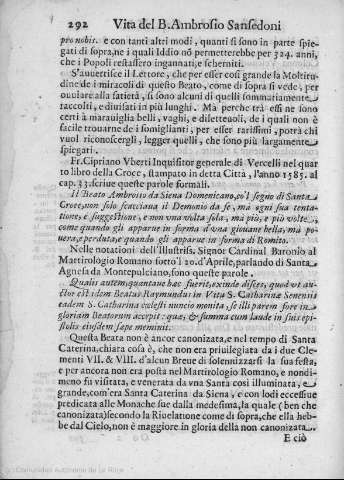 292 Vita del B. Ambrosio Sansedoni
pro nobis. e con tanti altri modi, quanti si sono in parte spie-
gati di sopra, ne i quali Iddio nõ permetterebbe per 324. anni,
che i Popoli restassero ingannati, e scherniti.
S'auuertisce il Lettore, che per esser così grande la Moltitu-
dine de i miracoli di questo Beato, come di sopra si vede, per
ouuiare alla satietà, si sono alcuni di quelli sommatiamente
raccolti, e diuisati in più lunghi. Ma perche trà essi ne sono
certi à marauiglia belli, vaghi, e diletteuoli, de i quali non è
facile trouarne de i somiglianti, per esser rarissimi, potrà chi
vuol riconoscergli, legger quelli, che sono più largamente
spiegati.
Fr. Cipriano Vberti Inquisitor generale di Vercelli nel quar
to libro della Croce, stampato in detta Città, l'anno 1585. al
cap. 33. scriue queste parole formali.
Il Beato Ambrosio da Siena Domenicano, co'l segno di Santa
Croce, non solo scacciaua il Demonio da se, ma ogni sua tenta-
tione, e suggestione, e non vna volta sola, ma più, e più volte,
come quando gli apparue in forma d'vna giouane bella, ma po-
uera, e perduta, e quando gli apparue in forma di Romito.
Nelle notationi dell'Illustriss. Signor Cardinal Baronio al
Martirologio Romano sotto'l 20. d'Aprile, parlando di Santa
Agnesa da Montepulciano, sono queste parole.
Qualis autem, quantaue hæc fuerit, exinde disces, quod vt au-
ctor est idem Beatus Raymundus in Vita S. Catharinæ Senensis
eadem S. Catharina cœlesti nuncio monita, se illi parem fore in
gloriam Beatorum accepit: quæ, & summa cum laude in suis epi-
stolis eiusdem sæpe meminit.
Questa Beata non è ancor canonizata, e nel tempo di Santa
Caterina, chiara cosa è, che non era priuilegiata da i due Cle-
menti VII. & VIII. d'alcun Breue di solennizzarsi la sua festa,
e per ancora non era posta nel Martirologio Romano, e nondi-
meno fu visitata, e venerata da vna Santa così illuminata, e
grande, com'era Santa Caterina da Siena, e con lodi eccessiue
predicata alle Monache sue dalla medesima, la quale (ben che
canonizata) secondo la Riuelatione come di sopra, che ella heb-
be dal Cielo, non è maggiore in gloria della non canonizata.
E ciò
© Comunidad Autónoma de La Rioja